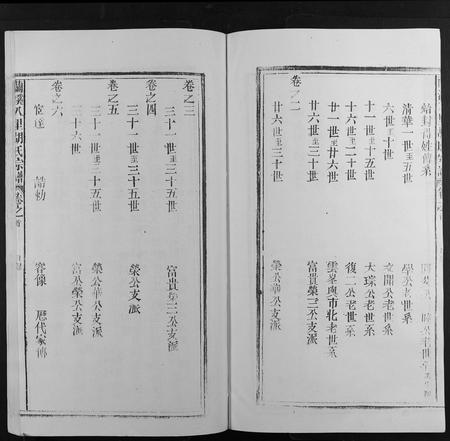 始封得姓傳系
清華一世至五世 學公老世系
六世至十世 文開公老世系
十一世至十五世 大琮公老世系
十一世至廿一世 復二公老世系
廿一世至廿六世 雲峯與市北老世系
廿六世至三世 富貴榮三公支派
卷之二
廿六世至三十世 榮公華公支派
卷之三
三十一世至三十五世 富貴榮三公支派
卷之四
三十一世至三十五世 榮公支派
卷之五
三十一世至三十五世 榮公華公支派
三十六世 富公榮公支派
卷之六
宦達 誥勅 容像 歷代家傳
蘭溪八里胡氏宗譜 卷之首 目錄